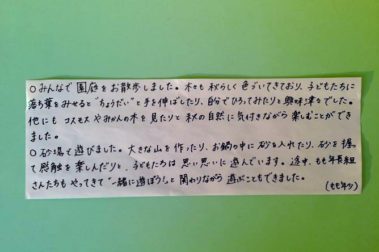 ○みんなで園庭をお散歩しました。木々も秋らしく色づいてきており、子どもたちに
落ち葉をみせると"ちょうだい"と手を伸ばしたり、自分でひろってみたりと興味津々でした。
他にもコスモスやみかんの木を見たりと秋の自然に気付きながら楽しむことができ
ました。
○砂場で遊びました。大きな山を作ったり、お鍋の中に砂を入れたり、砂を握っ
て感触を楽しんだりと、子どもたちは思い思いに遊んでいます。途中、もも年長組
さんたちもやってきて"一緒に遊ぼう!"と関わりながら遊ぶこともできました。
(もも年少)